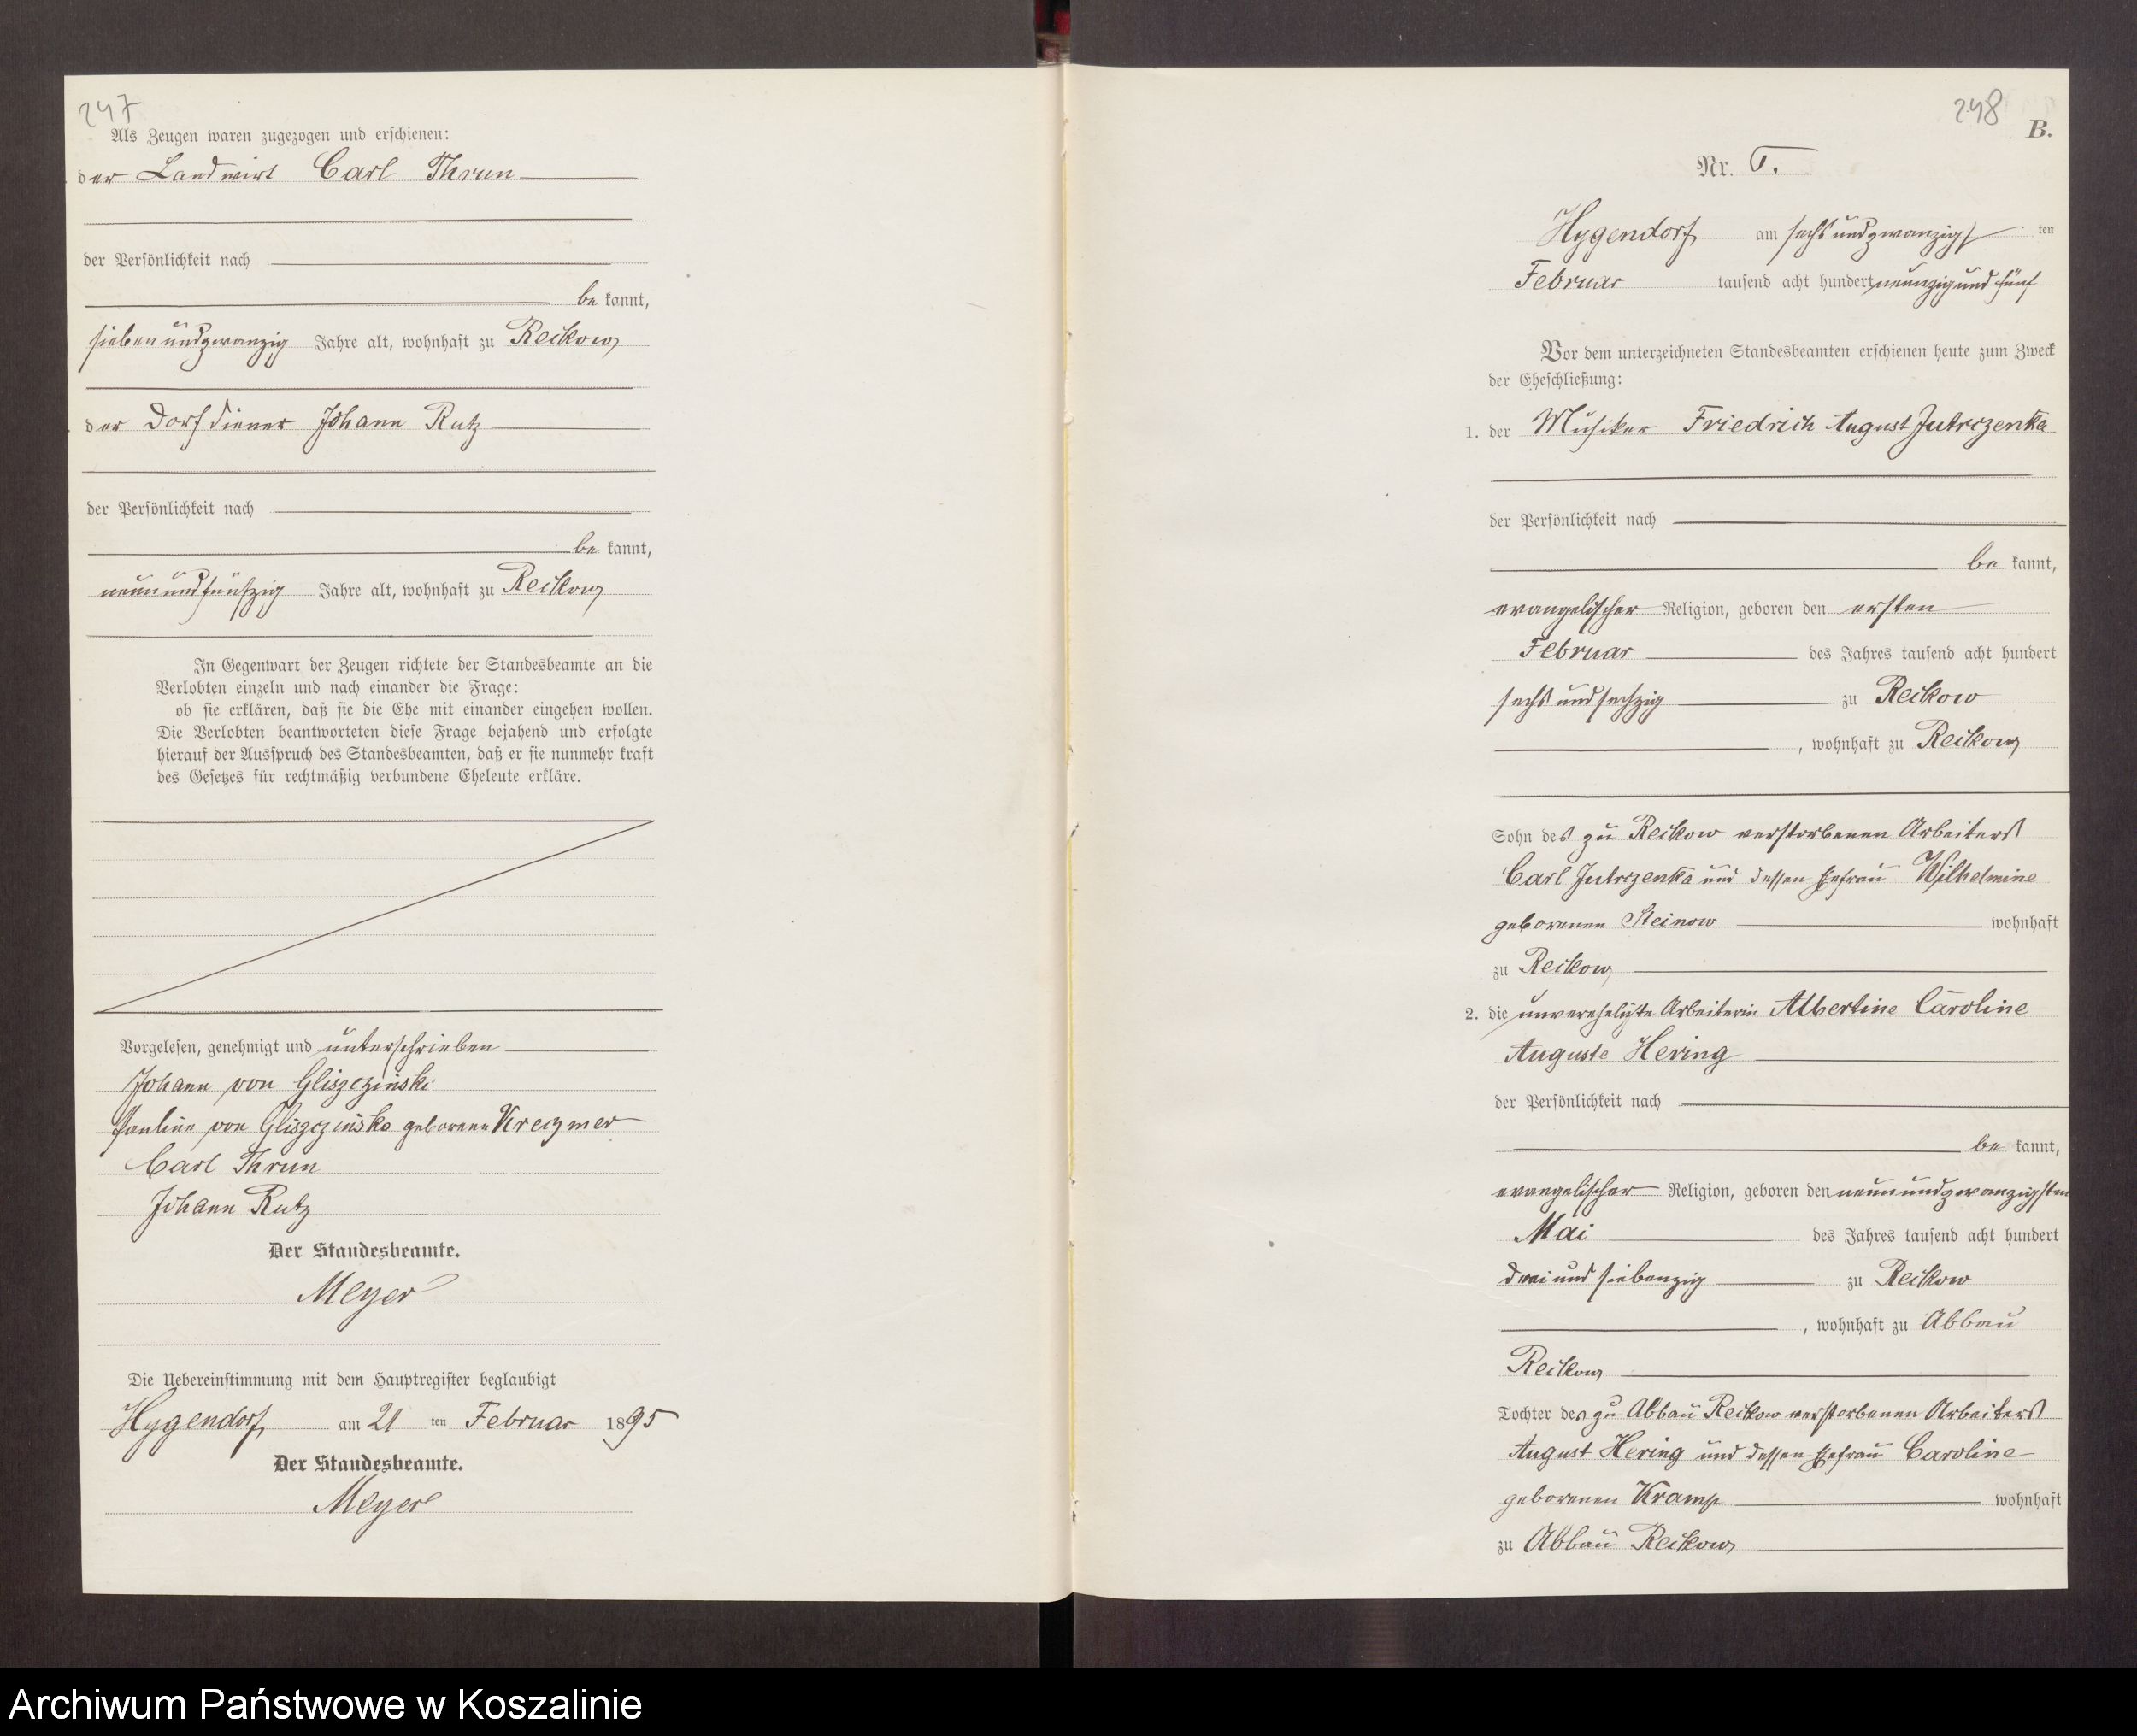 247
Als Zeugen waren zugezogen und erschienen:
der Landwirt Carl Thrun
der Persönlichkeit nach
be kannt,
siebenundzwanzig Jahre alt, wohnhaft zu Reckow
der Dorfdiener Johann Rutz
der Persönlichkeit nach
be kannt,
neunundfünfzig Jahre alt, wohnhaft zu Reckow
In Gegenwart der Zeugen richtete der Standesbeamte an die
Verlobten einzeln und nach einander die Frage:
ob sie erklären, daß sie die Ehe mit einander eingehen wollen.
Die Verlobten beantworteten diese Frage bejahend und erfolgte
hierauf der Ausspruch des Standesbeamten, daß er sie nunmehr kraft
des Gesetzes für rechtmäßig verbundene Eheleute erkläre.
Vorgelesen, genehmigt und unterschrieben
Johann von Gliszczinski
Pauline von Gliszczinska geborene Kreczmer
Carl Thrun
Johann Rutz
Der Standesbeamte.
Meyer
Die Uebereinstimmung mit dem Hauptregister beglaubigt
Hygendorf, am 21 ten Februar 1895
Der Standesbeamte.
Meyer
248
B.
Nr. 5.
Hygendorf am sechsundzwanzigs ten
Februar tausend acht hundert neunzig und fünf
Vor dem unterzeichneten Standesbeamten erschienen heute zum Zweck
der Eheschließung:
1. der Musiker Friedrich August Jutrzenka
der Persönlichkeit nach
be kannt,
evangelischer Religion, geboren den ersten
Februar des Jahres tausend acht hundert
sechs und sechzig zu Reckow
, wohnhaft zu Reckow
Sohn des zu Reckow verstorbenen Arbeiters
Carl Jutrzenka und dessen Ehefrau Wilhelmine
geborenen Steinow wohnhaft
zu Reckow
2. die unverehelichte Arbeiterin Albertine Caroline
Auguste Hering
der Persönlichkeit nach
be kannt,
evangelischer Religion, geboren den neunundzwanzigsten
Mai des Jahres tausend acht hundert
drei und siebenzig zu Reckow
, wohnhaft zu Abbau
Reckow
Tochter des zu Abbau Reckow verstorbenen Arbeiters
August Hering und dessen Ehefrau Caroline
geborenen Kramp wohnhaft
zu Abbau Reckow
Archiwum Państwowe w Koszalinie